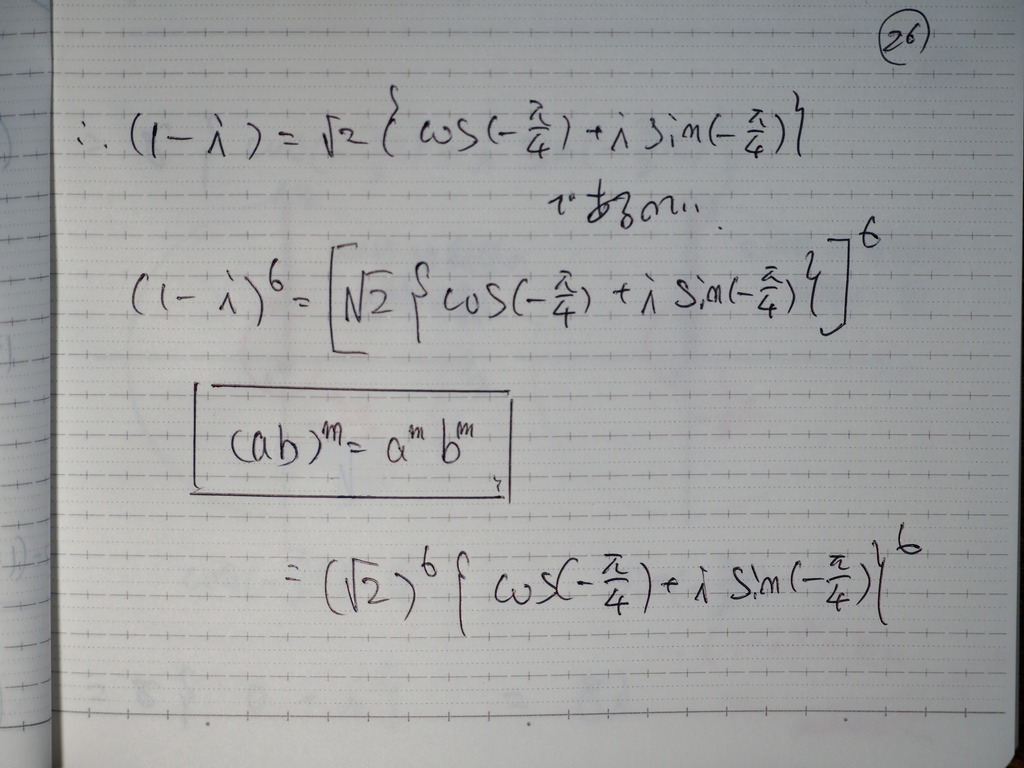 26
∴ (1-i) = √2 { cos(-π/4) + i sin(-π/4)}
であるので..
(1-i)^6 = [√2 { cos(-π/4) + i sin(-π/4)}]^6
(ab)^m = a^m b^m
= (√2)^6 { cos(-π/4) + i sin(-π/4)}^6